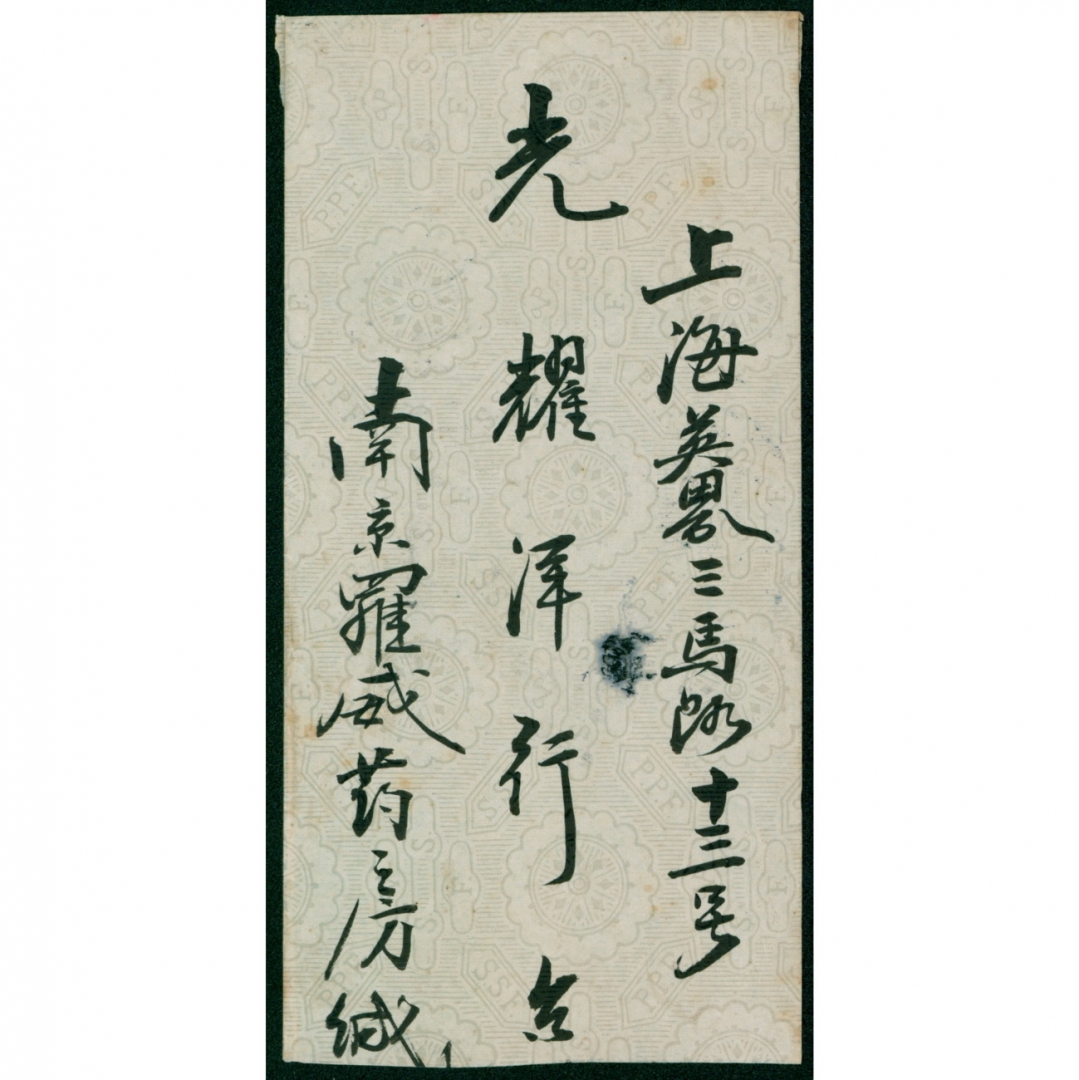 上海英界三马路十三号
光耀洋行台
南京羅威药房缄